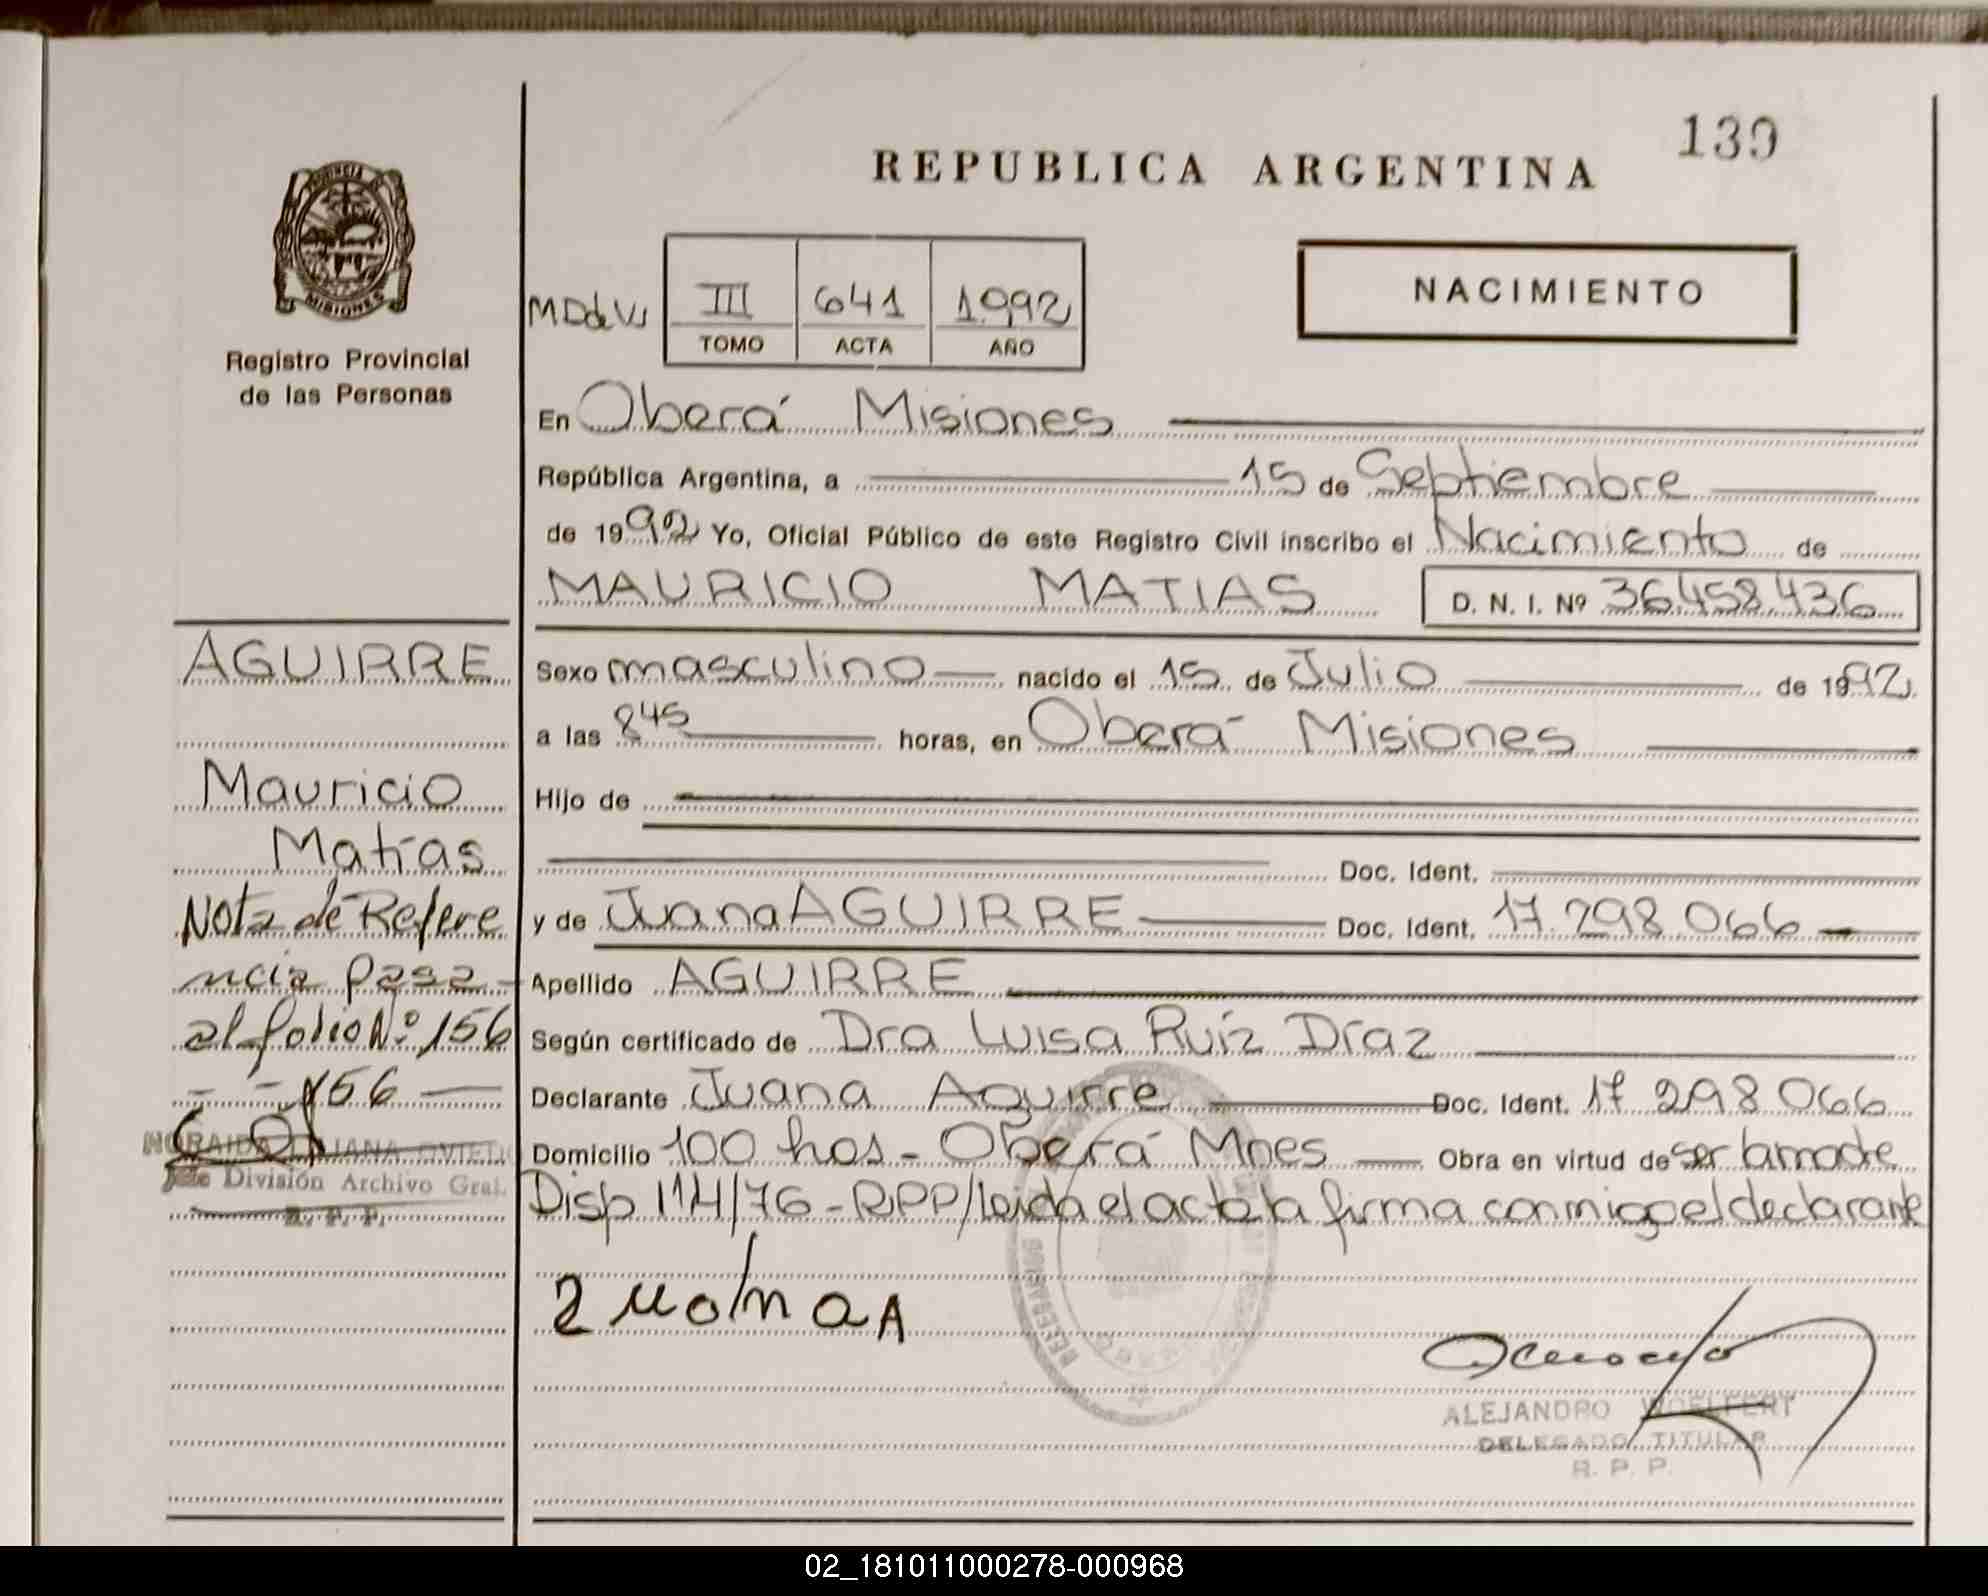 139
REPUBLICA ARGENTINA
PROVINCIA DE
MISIONES
Registro Provincial
de las Personas
NACIMIENTO
III 641 1.992
TOMO ACTA AÑO
En Oberá Misiones
República Argentina, a 15 de Septiembre
de 1992 Yo, Oficial Público de este Registro Civil inscribo el Nacimiento de
MAURICIO MATIAS D. N. I. Nº 36.458.436
AGUIRRE
Sexo masculino nacido el 15 de Julio de 1992
a las 8 45 horas, en Oberá Misiones
Mauricio
Hijo de
Matías
Doc. Ident.
Nota de Refere
y de Juana AGUIRRE Doc. Ident. 17.298.066
ncia pasa
Apellido AGUIRRE
al folio Nº 156
Según certificado de Dra Luisa Ruíz Díaz
- - 156
Declarante Juana Aguirre Doc. Ident. 17 298 066
NORAIDA
Domicilio 100 has - Oberá Mnes Obra en virtud de ser la madre
Jefe División Archivo Gral.
R. P. P.
Disp 114/76 - RPP/Leida el acta la firma conmigo el declarante
ALEJANDRO WOELFERT
DELEGADO TITULAR
R. P. P.
02_181011000278-000968